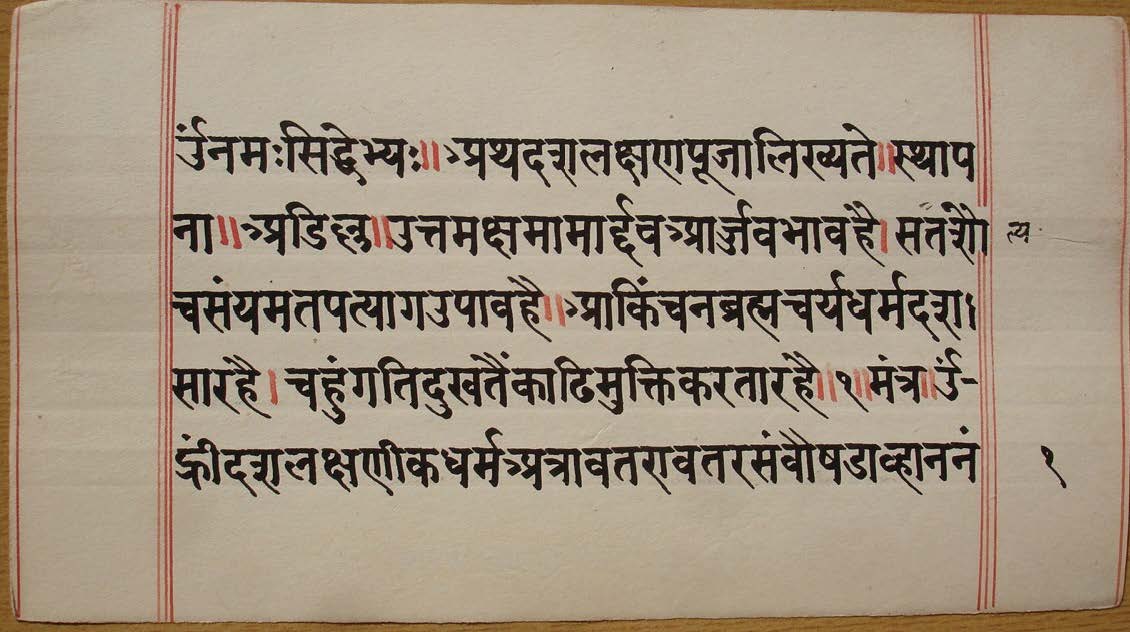 ॐनमःसिद्धेभ्यः॥अथदशलक्षणपूजालिख्यते॥स्थाप
ना॥अडिल्ल॥उत्तमक्षमामार्द्दवआर्ज्जवभावहैं।सतशौ त्य
चसंयमतपत्यागउपावहै॥आकिंचनब्रह्मचर्यधर्मदश।
सारहै।चहुंगतिदुखतैंकाढिमुक्तिकरतारहै॥१॥मंत्र॥ॐ-
ह्रींदशलक्षणीकधर्मअत्रावतरावतरसंवौषडाव्हाननं १